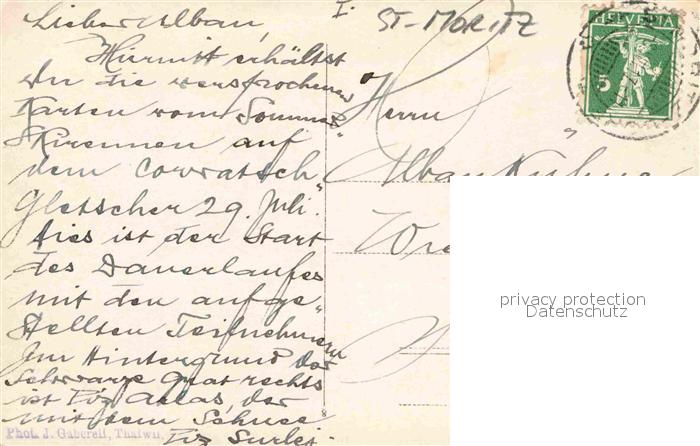 I.
Lieber Alban,
Hiermit erhältst
du die versprochenen
Karten vom Sommer=
Skirennen auf
dem Corvatsch
Gletscher 29. Juli.
Dies ist der Start
des Dauerlaufes
mit den aufge=
stellten Teilnehmern
Im Hintergrund der
Schwarze Grat rechts
ist Piz der
mit dem Schnee
Piz Surlej.
Phot. J. Gaberell, Thalwil.
ST-MORITZ
HELVETIA
5
Herrn
Alban
privacy protection
Datenschutz